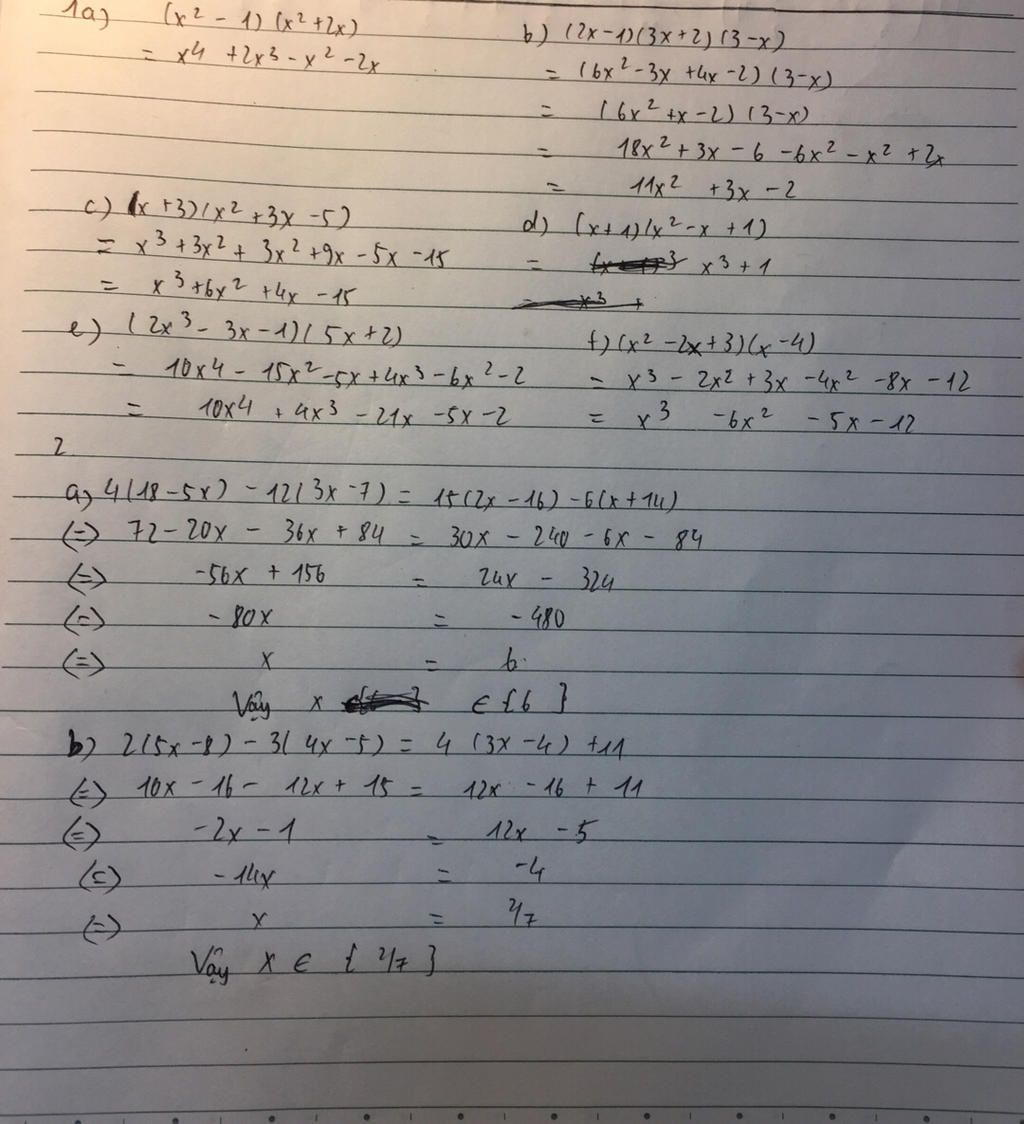 1a) (x² - 1)(x² + 2x)
= x4 + 2x³ - x² - 2x
b) (2x - 1)(3x + 2)(3 - x)
= (6x² - 3x + 4x - 2)(3 - x)
= (6x² + x - 2)(3 - x)
= 18x² + 3x - 6 - 6x² - x² + 2x
= 11x² + 3x - 2
c) (x + 3)(x² + 3x - 5)
= x³ + 3x² + 3x² + 9x - 5x - 15
= x³ + 6x² + 4x - 15
d) (x + 1)(x² - x + 1)
= x³ + 1
e) (2x³ - 3x - 1)(5x + 2)
= 10x4 - 15x² - 5x + 4x³ - 6x² - 2
= 10x4 + 4x³ - 21x - 5x - 2
f) (x² - 2x + 3)(x - 4)
= x³ - 2x² + 3x - 4x² - 8x - 12
= x³ - 6x² - 5x - 12
2
a) 4(18 - 5x) - 12(3x - 7) = 15(2x - 16) - 6(x + 14)
(=) 72 - 20x - 36x + 84 = 30x - 240 - 6x - 84
(=) -56x + 156 = 24x - 324
(=) - 80x = - 480
(=) x = 6
Vậy x ∈ {6}
b) 2(5x - 8) - 3(4x - 5) = 4(3x - 4) + 11
(=) 10x - 16 - 12x + 15 = 12x - 16 + 11
(=) -2x - 1 = 12x - 5
(=) - 14x = -4
(=) x = 2/7
Vậy x ∈ {2/7}